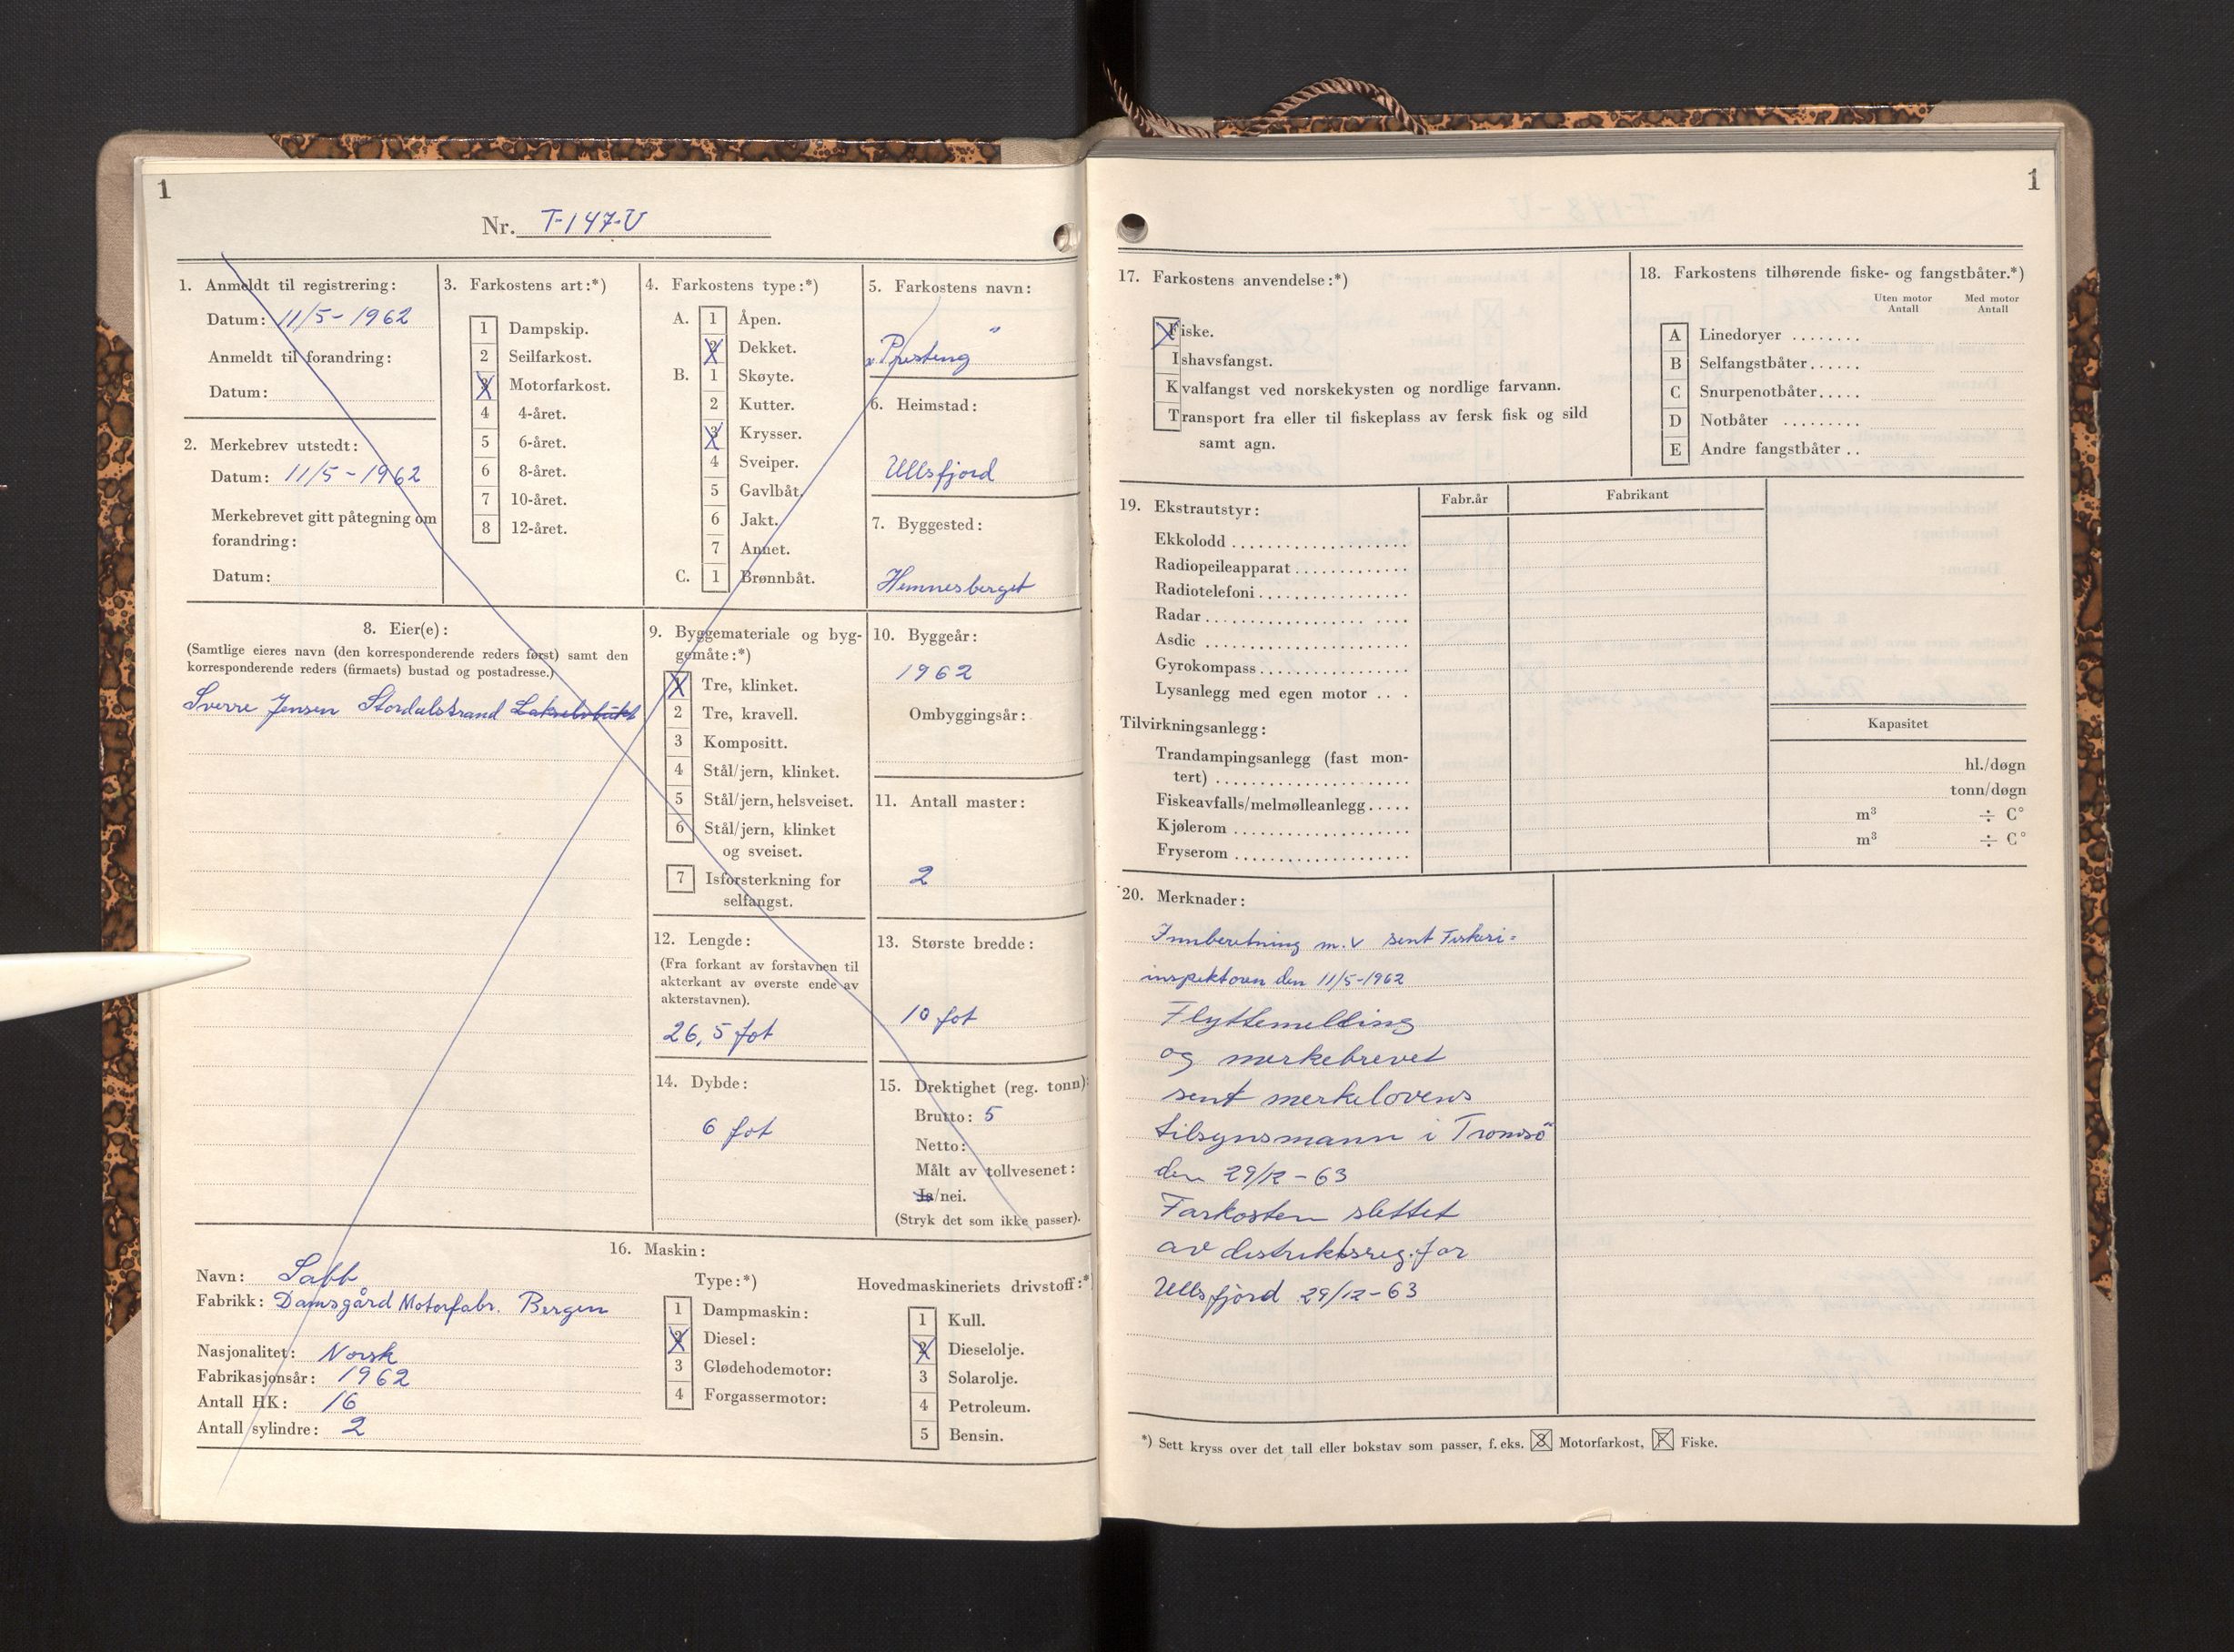 1
Nr. T-147-U
1. Anmeldt til registrering:
Datum: 11/5-1962
Anmeldt til forandring:
Datum:
2. Merkebrev utstedt:
Datum: 11/5-1962
Merkebrevet gitt påtegning om
forandring:
Datum:
3. Farkostens art:*)
1 Dampskip.
2 Seilfarkost.
3 Motorfarkost.
4 4-året.
5 6-året.
6 8-året.
7 10-året.
8 12-året.
4. Farkostens type:*)
A. 1 Åpen.
2 Dekket.
B. 1 Skøyte.
2 Kutter.
3 Krysser.
4 Sveiper.
5 Gavlbåt.
6 Jakt.
7 Annet.
C. 1 Brønnbåt.
5. Farkostens navn:
6. Heimstad:
Ullsfjord
7. Byggested:
Hemnesberget
8. Eier(e):
(Samtlige eieres navn (den korresponderende reders først) samt den
korresponderende reders (firmaets) bustad og postadresse.)
Sverre Jensen Stordalstrand Lakselvbukt
9. Byggemateriale og byg-
gemåte:*)
1 Tre, klinket.
2 Tre, kravell.
3 Kompositt.
4 Stål/jern, klinket.
5 Stål/jern, helsveiset.
6 Stål/jern, klinket
og sveiset.
7 Isforsterkning for
selfangst.
10. Byggeår:
1962
Ombyggingsår:
11. Antall master:
2
12. Lengde:
(Fra forkant av forstavnen til
akterkant av øverste ende av
akterstavnen).
26,5 fot
13. Største bredde:
10 fot
14. Dybde:
6 fot
15. Drektighet (reg. tonn):
Brutto: 5
Netto:
Målt av tollvesenet:
Ja/nei.
(Stryk det som ikke passer).
16. Maskin:
Navn: Sabb
Fabrikk: Damsgård Motorfabr. Bergen
Nasjonalitet: Norsk
Fabrikasjonsår: 1962
Antall HK: 16
Antall sylindre: 2
Type:*)
1 Dampmaskin:
2 Diesel:
3 Glødehodemotor:
4 Forgassermotor:
Hovedmaskineriets drivstoff:*
1 Kull.
2 Dieselolje.
3 Solarolje.
4 Petroleum.
5 Bensin.
1
17. Farkostens anvendelse:*)
Fiske.
Ishavsfangst.
Kvalfangst ved norskekysten og nordlige farvann.
Transport fra eller til fiskeplass av fersk fisk og sild
samt agn.
18. Farkostens tilhørende fiske- og fangstbåter.*)
Uten motor Antall Med motor Antall
A Linedoryer ........
B Selfangstbåter......
C Snurpenotbåter.....
D Notbåter .........
E Andre fangstbåter ..
19. Ekstrautstyr:
Fabr.år Fabrikant
Ekkolodd ....................
Radiopeileapparat .............
Radiotelefoni .................
Radar ................ ....
Asdic ......................
Gyrokompass .................
Lysanlegg med egen motor ....
Tilvirkningsanlegg:
Kapasitet
Trandampingsanlegg (fast mon-
tert) ...................... hl./døgn
Fiskeavfalls/melmølleanlegg..... tonn/døgn
Kjølerom .................... m³ ÷ C°
Fryserom .................... m³ ÷ C°
20. Merknader:
Innberetning m.v sent Fiskeri=
inspektøren den 11/5-1962
Flyttemelding
og merkebrevet
sent merkelovens
tilsynsmann i Tromsö
den 29/12-63
Farkosten slettet
av distriktsreg. for
Ullsfjord 29/12-63
*) Sett kryss over det tall eller bokstav som passer, f. eks. 3 Motorfarkost, F Fiske.